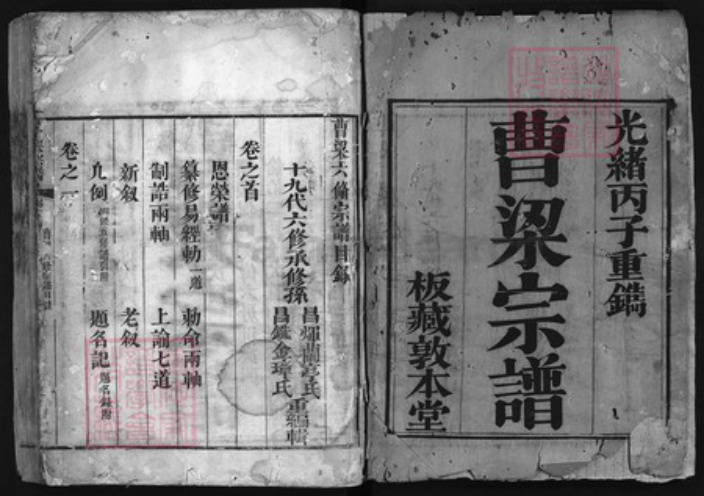 光緒丙子重鐫
曹梁宗譜
板藏敦本堂
曹梁六修宗譜目錄
十九代六修承修孫
昌輝蘭亭氏
昌鑑金璋氏
重編輯
卷之首
恩榮譜
纂修易經勅一道 勅命兩軸
制誥兩軸 上諭七道
新敘 老敘
凡例 題名記題名錄附
卷之一